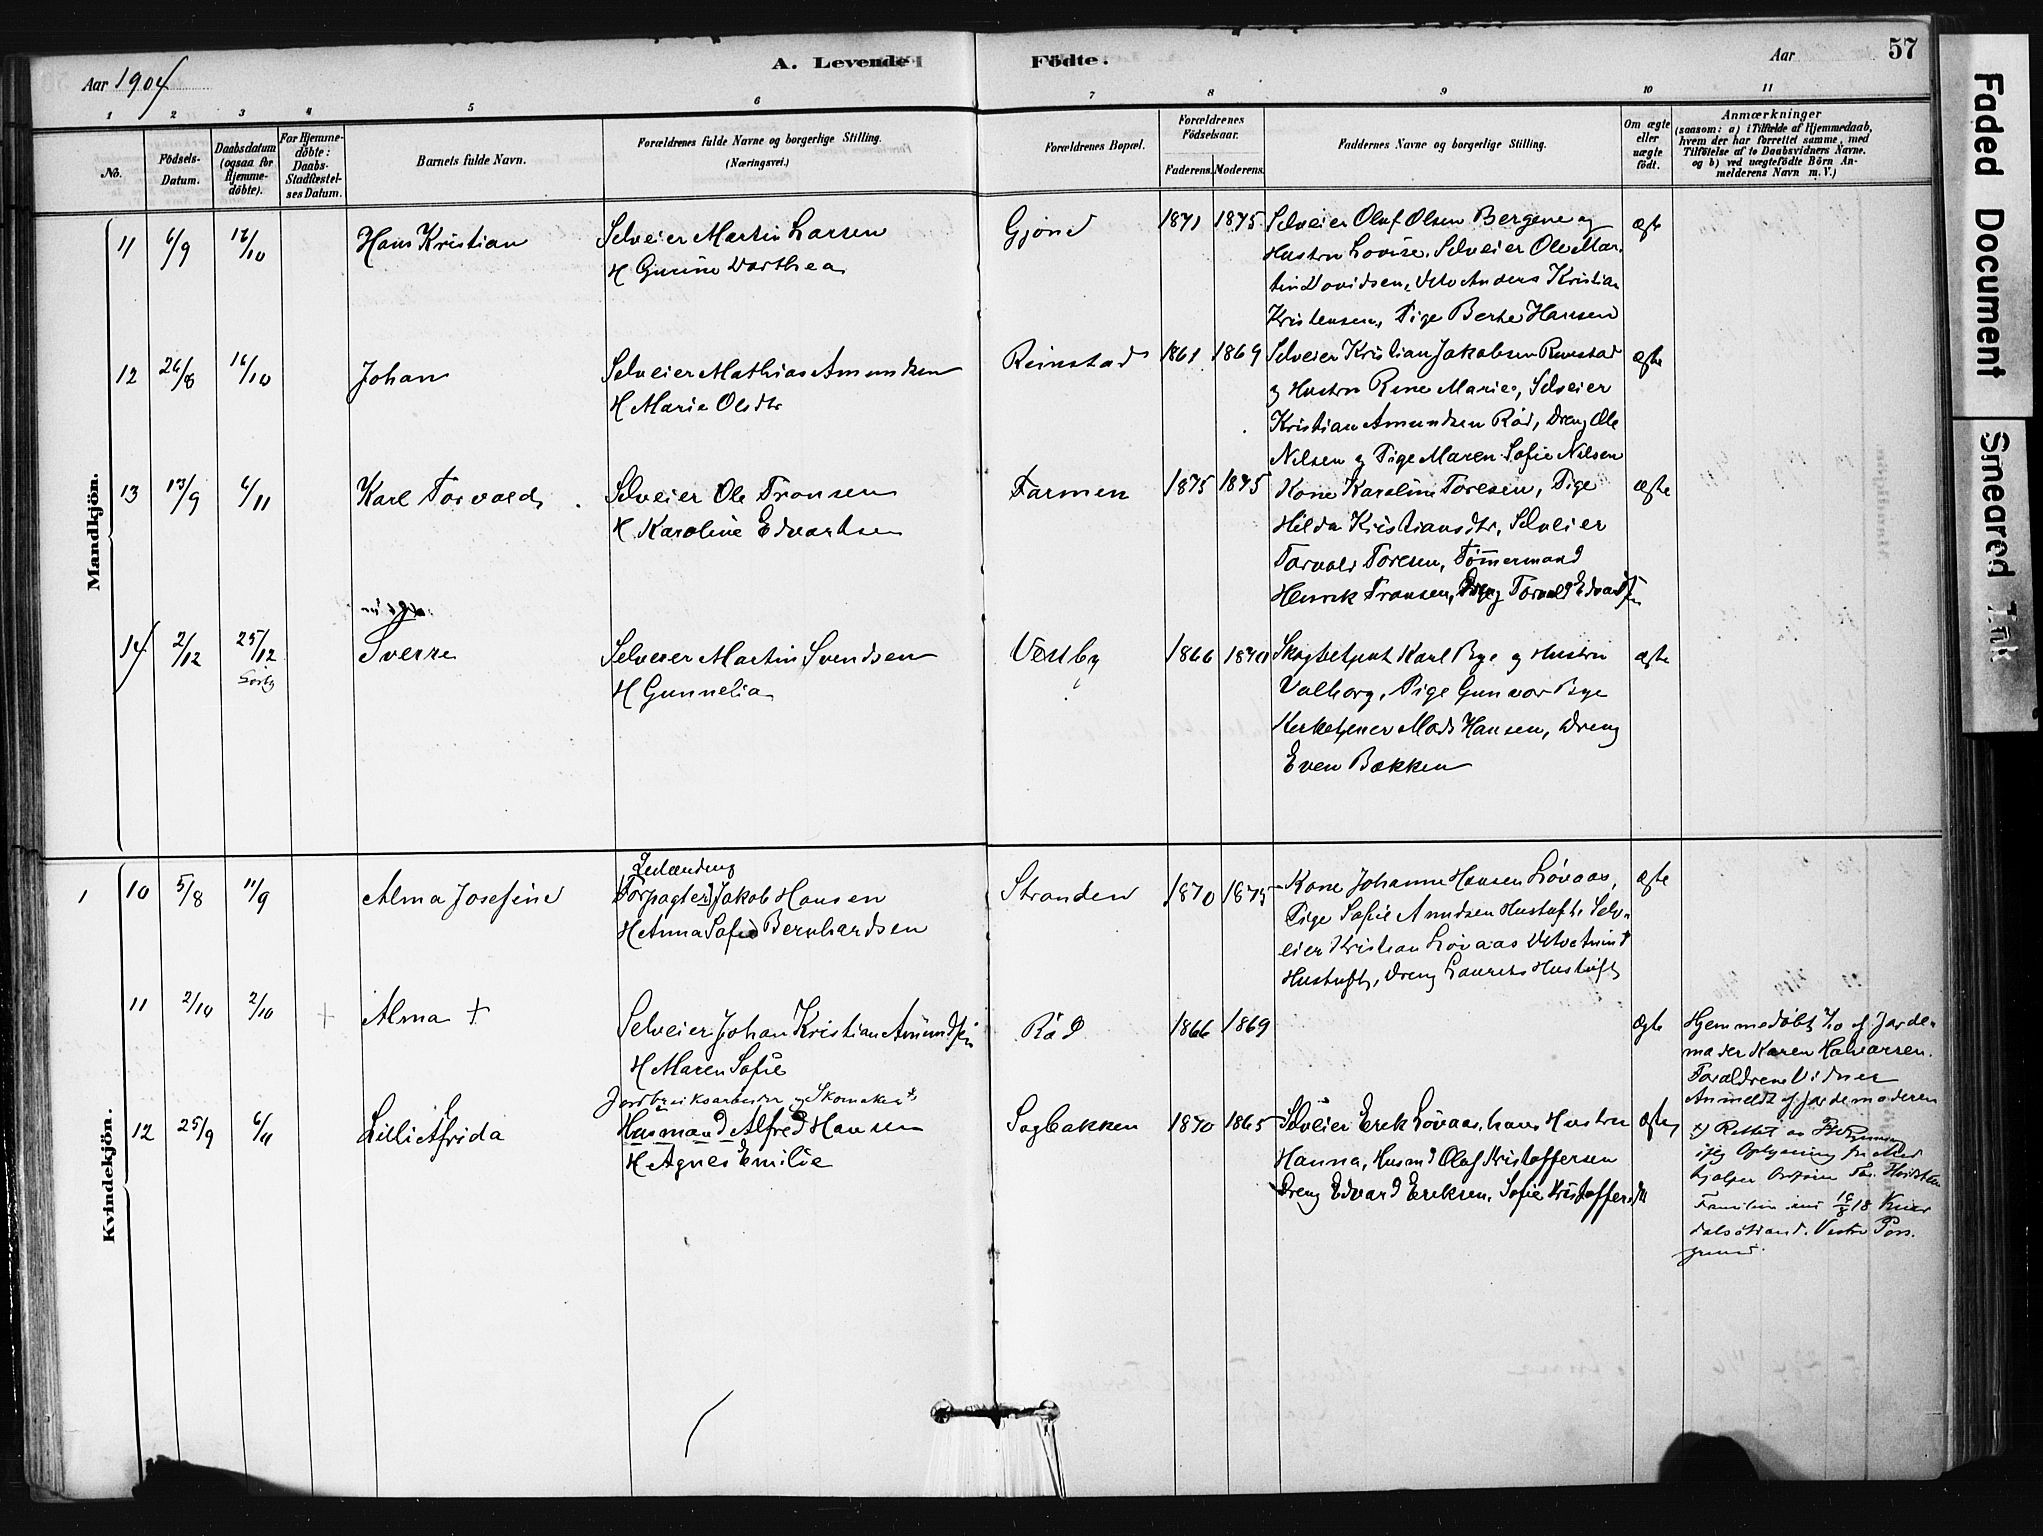 57
Aar 1904
A. Levende Födte.
Aar
1 2 3 4 5 6 7 8 9 10 11
No.
Födsels-Datum.
Daabsdatum (ogsaa for Hjemme-döbte).
For Hjemme-döbte: Daabs-Stadfæstel-ses Datum.
Barnets fulde Navn.
Forældrenes fulde Navne og borgerlige Stilling.
(Næringsvei.)
Forældrenes Bopæl.
Forældrenes Födselsaar.
Faderens. Moderens.
Faddernes Navne og borgerlige Stilling.
Om ægte eller uægte födt.
Anmærkninger
(saasom: a) i Tilfælde af Hjemmedaab,
hvem der har forrettet samme, med
Tilföielse af to Daabsvidners Navne,
og b) ved uægtefödte Börn An-
melderens Navn m. V.)
Mandkjön.
11 6/9 16/10 Hans Kristian
Selveier Martin Larsen
H Gurine Dorthea
Gjøne 1871 1875
Selveier Oluf Olsen Bergene og
Hustru Lovise, Selveier Ole Mar-
tin Davidsen, Anders Kristian
Kristensen, Pige Berte Hansen
ægte
12 26/8 16/10 Johan
Selveier Mathias Amundsen
H Marie Olsdtr
Reinstad 1861 1869
Selveier Kristian Jakobsen Reinstad
og Hustru Rine Marie, Selveier
Kristian Amundsen Röd, Dreng Ole
Nilsen og Pige Maren Sofie Nilsen
ægte
13 13/9 6/11 Karl Torvald
Selveier Ole Fransen
H Karoline Edvartsen
Farmen 1875 1875
Kone Karoline Toresen, Pige
Hilda Kristiansdtr, Selveier
Torvald Toresen, Tømmermand
Henrik Fransen, Dreng Torvald Edvardsen
ægte
14 2/12 25/12 Sverre
Selveier Martin Svendsen
H Gunnelia
Vestby 1866 1870
Karl Bye og Hustru
Valborg, Pige Gunvor Bye
Kirketjener Mads Hansen, Dreng
Even Bækken
ægte
Kvindekjön.
1 10 5/8 11/9 Alma Josefine
Forpagter Jakob Hansen
H Anna Sofie Bernhardsen
Stranden 1870 1875
Kone Johanne Hansen Løvaas,
Pige Sofie Amudsen Hustuft, Selv-
eier Kristian Løvaas
Hustuft, Dreng Laurits Hustuft
ægte
11 2/10 2/10 + Alma +
Selveier Johan Kristian Amundsen
H Maren Sofie
Röd 1866 1869
Ægte
Hjemmedøbt 2/10 af Jorde-
moder Karen Halvorsen.
Forældrene Vidner
Anmeldt af Jordemoderen
12 25/9 6/11 Lilli Afrida
Jordbruksarbeider og Skomaker x)
Husmand Alfred Hansen
H Agnes Emilie
Sagbakken 1870 1865
Selveier Erik Løvaas, hans Hustru
Hanna, Husmd Olaf Kristoffersen
Dreng Edvard Eriksen, Sofie Kristoffersdtr
ægte
x) Rettet av
Oplysning
Familien
18/8 18
dalsstrand. Vestre Pors-
grund.
Faded Document
Smeared Ink